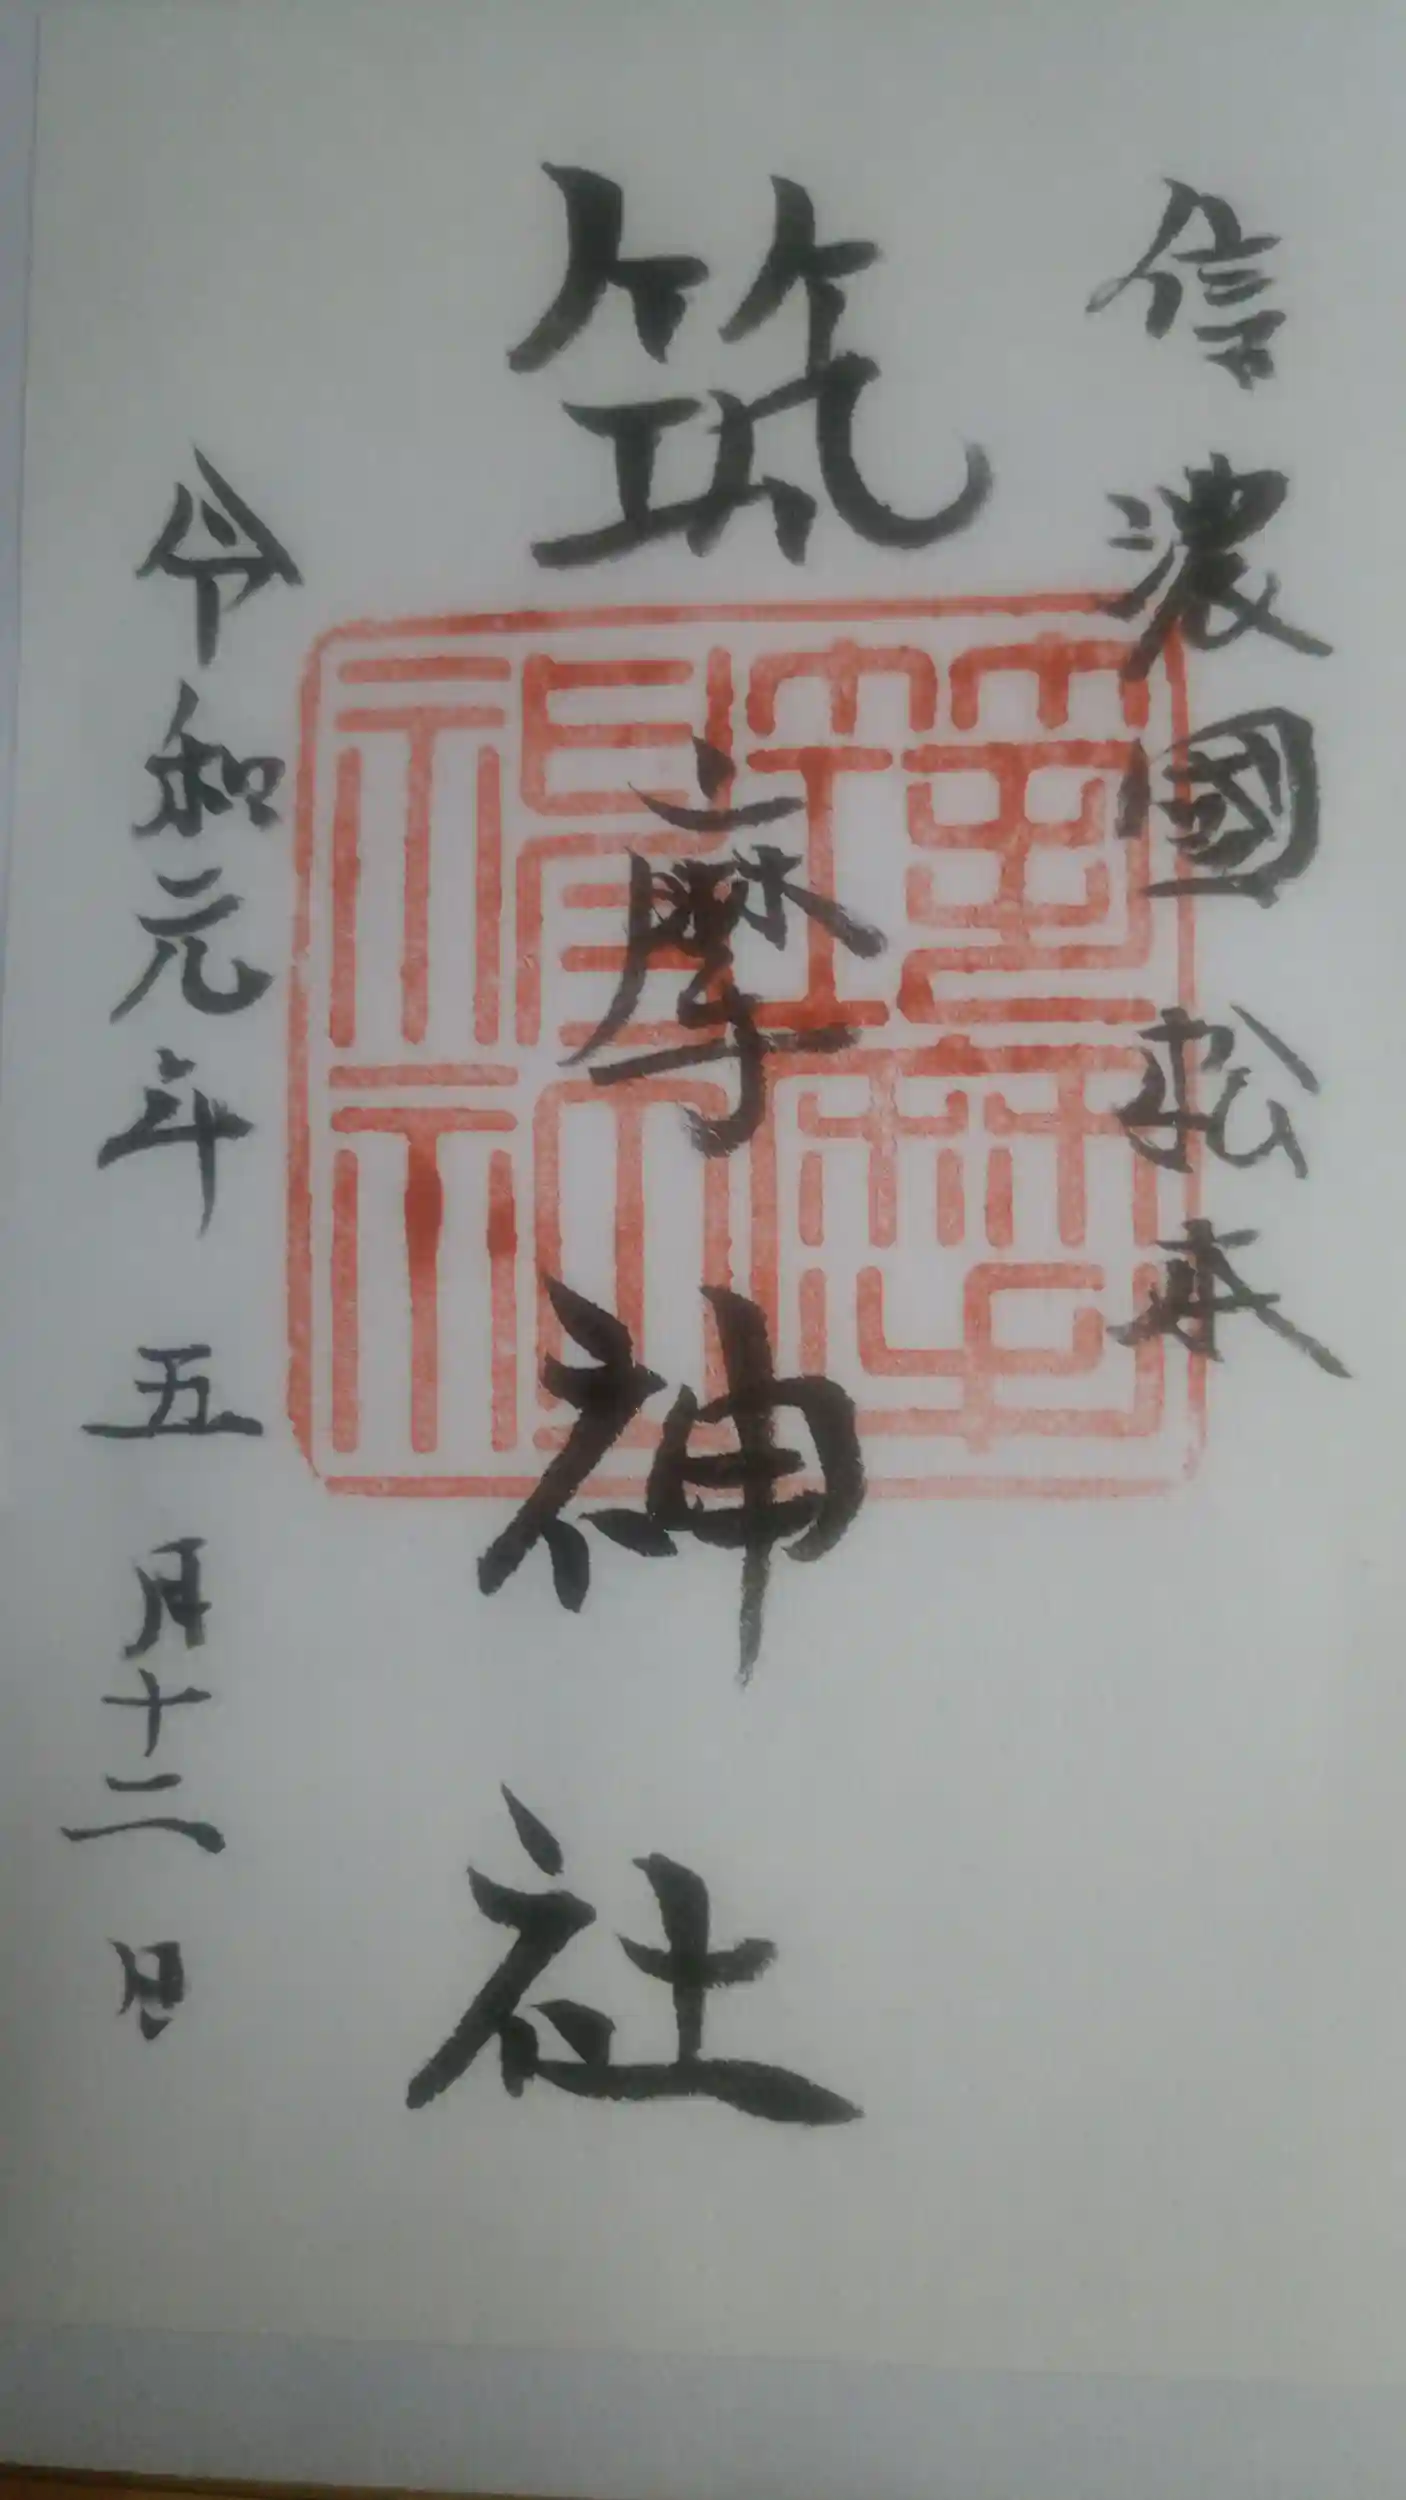 信濃國松本
筑摩神社
令和元年五月十二日
筑摩神社